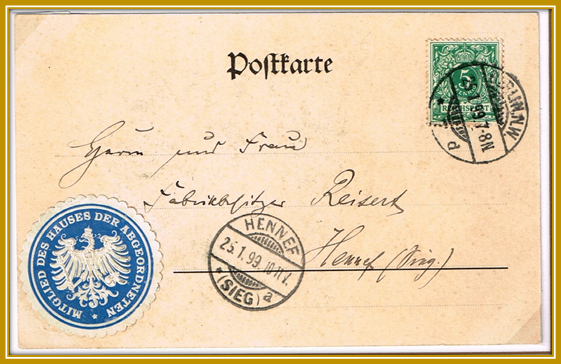 Postkarte
5
REICHSPOST
BERLIN, N.W.
1.99.7-8N
P
Herrn und Frau
Fabrikbesitzer Reisert
Hennef (Sieg.)
HENNEF
25.1.99.10-11V.
* (SIEG) a
MITGLIED DES HAUSES DER ABGEORDNETEN